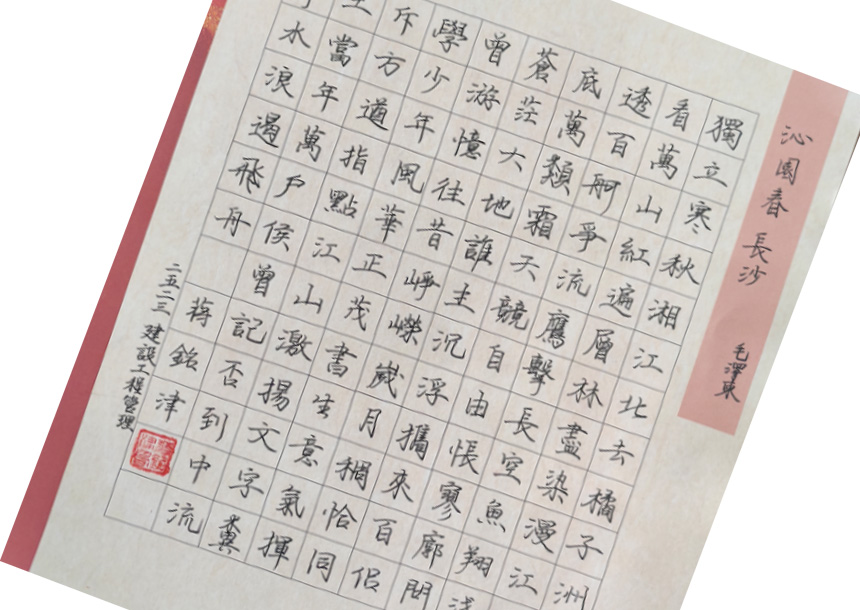 沁園春 長沙
毛澤東
獨立寒秋湘江北去橘子洲
看萬山紅遍層林盡染漫江
透百舸爭流鷹擊長空魚翔淺
底萬類霜天競自由悵寥廓問
蒼茫大地誰主沉浮攜來百侶
曾游憶往昔崢嶸歲月稠恰同
學少年風華正茂書生意氣揮
斥方遒指點江山激揚文字糞
當年萬户侯曾記否到中流
水浪遏飛舟 蔣銘津
二五二三 建設工程管理